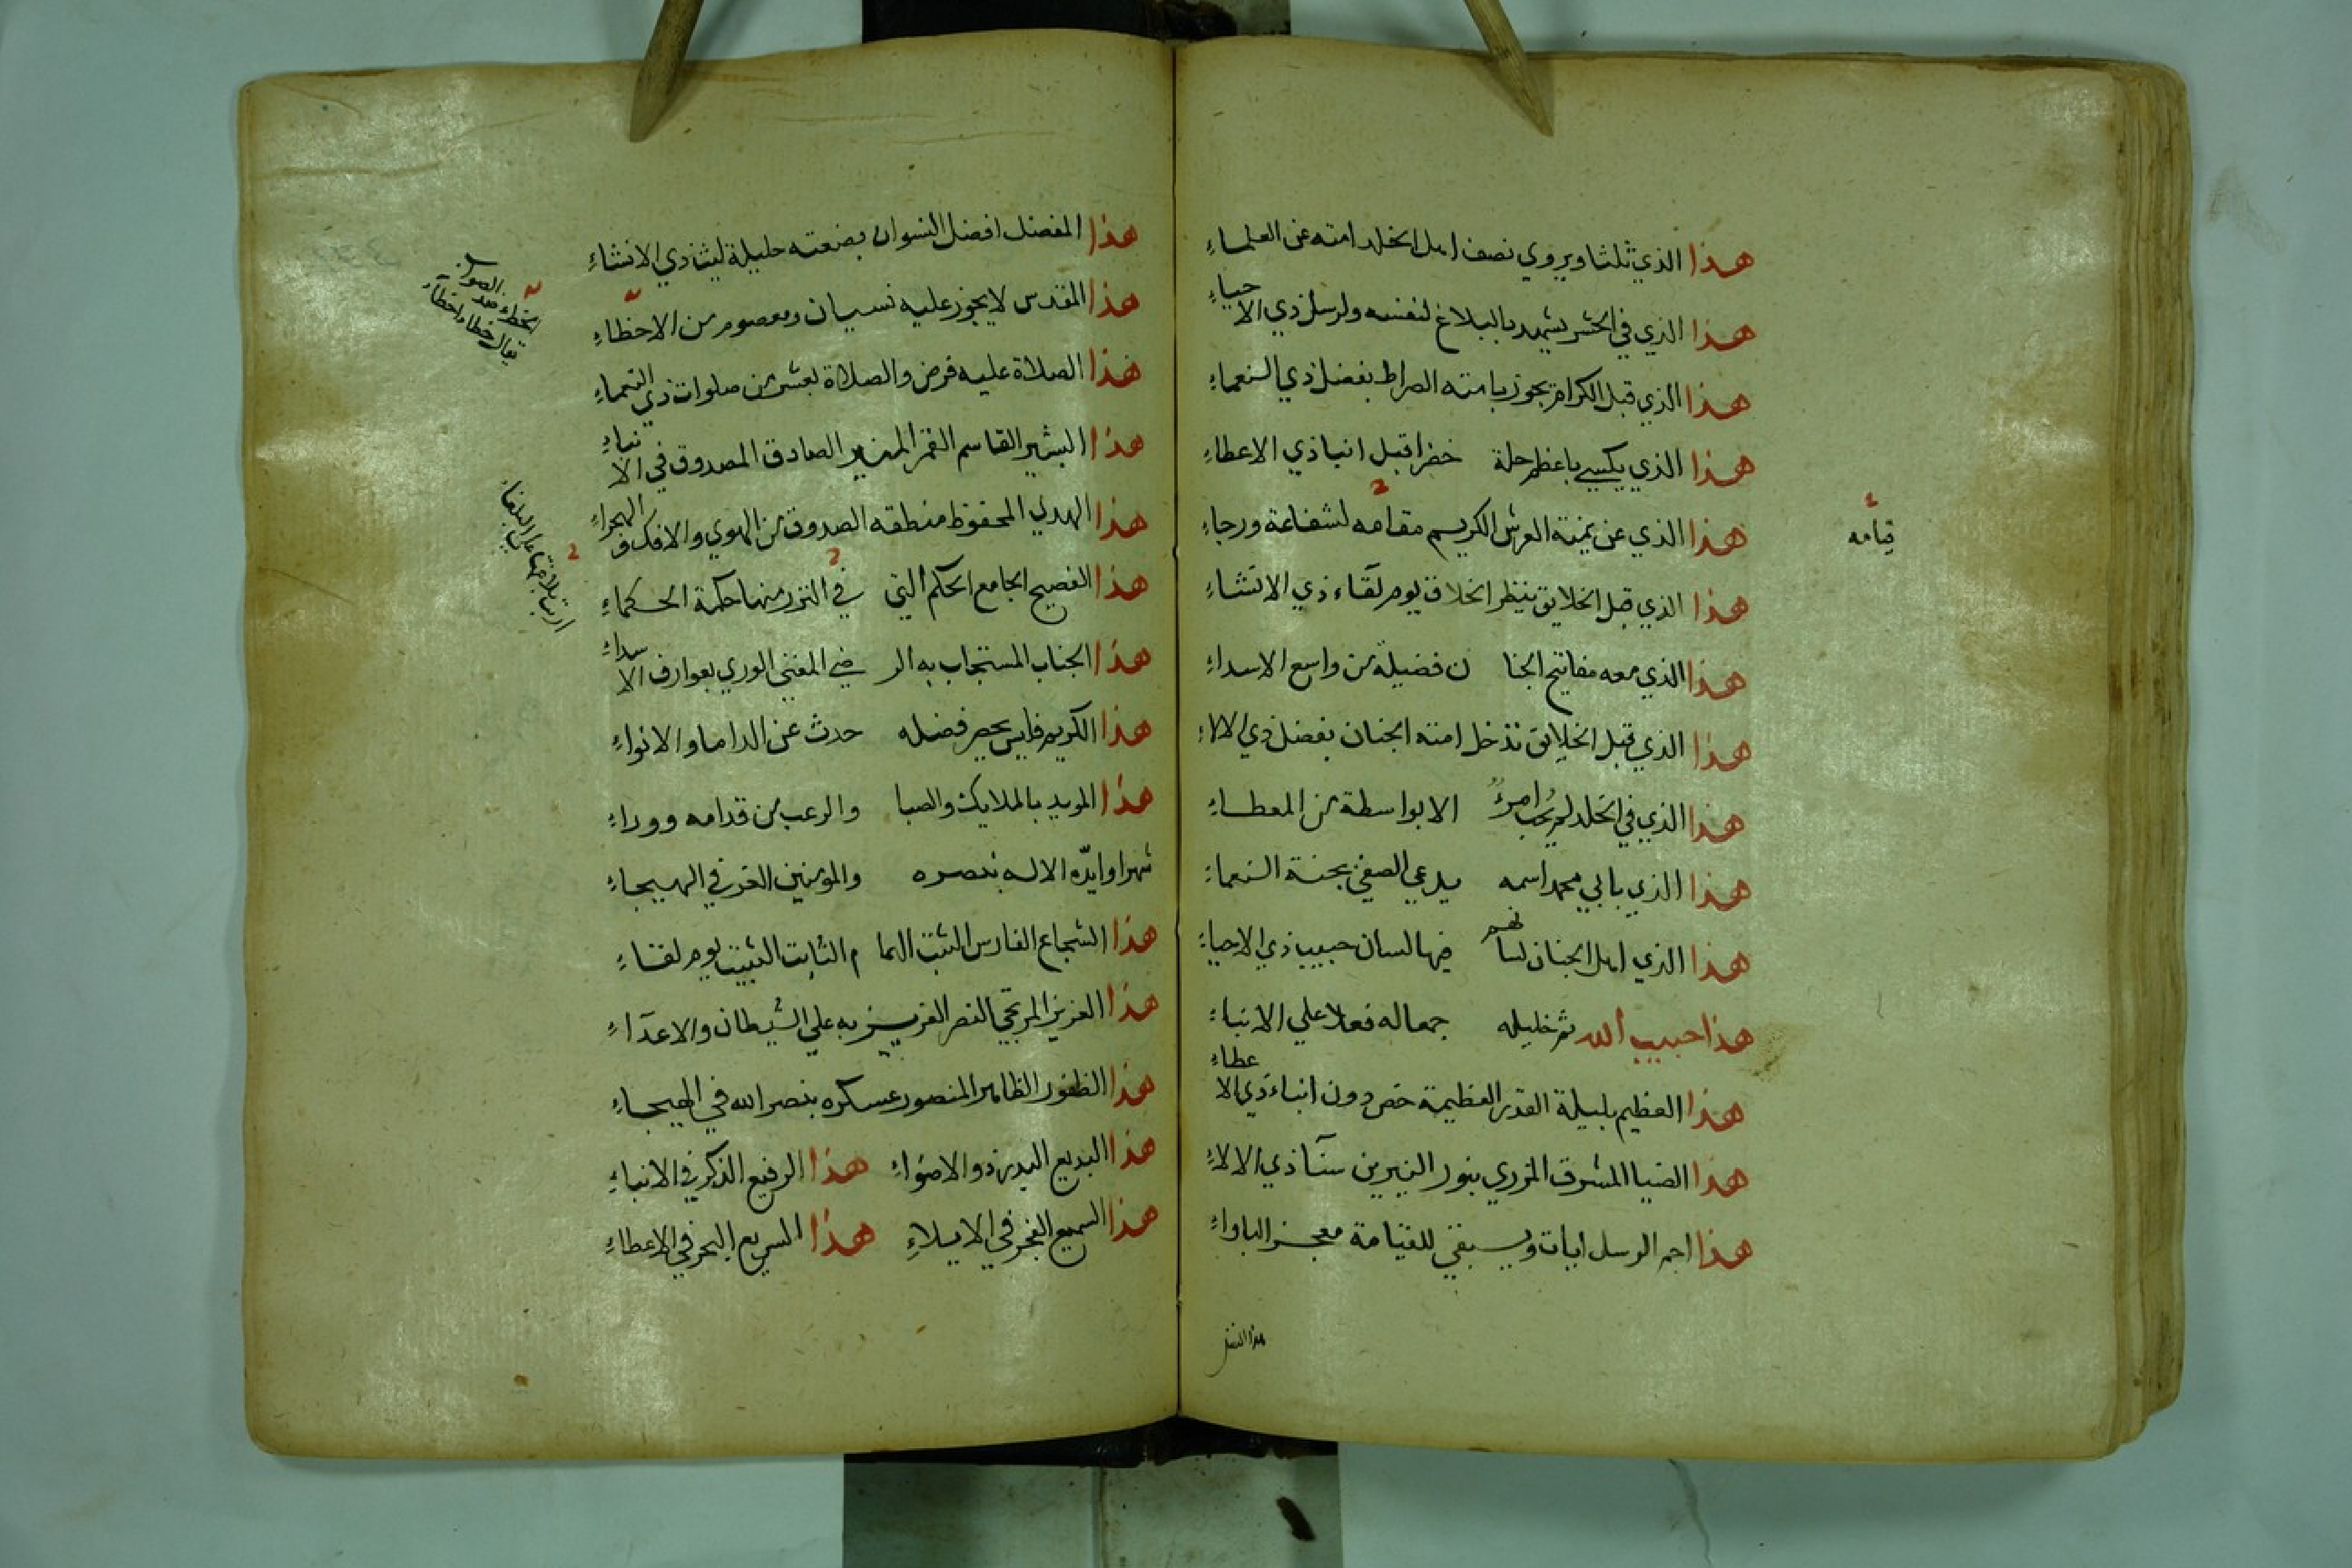 هذا الذي ثلثا ويروي نصف اهل الخلد امته عن العلماء
هذا الذي في الحشر يشهد بالبلاغ لنفسه ولرسل ذي الاحياء
هذا الذي قبل الكرام يجوز بامته الصراط بفضل ذي النعماء
هذا الذي يكسي باعظم حلة خضرا قبل انبا ذي الاعطاء
هذا الذي عن يمنة العرش الكريم مقامه لشفاعة ورجاء
قيامه
هذا الذي قبل الخلايق ينظر الخلاق يوم لقاء ذي الانشاء
هذا الذي معه مفاتيح الجنا ن فضيلة من واسع الاسداء
هذا الذي قبل الخلايق تدخل امته الجنان بفضل ذي الالاء
هذا الذي في الخلد لم يحب امرؤ الا بواسطة من المعطاء
هذا الذي بابي محمد اسمه يدعي الصفي بجنة النعماء
هذا الذي اهل الجنان لسانهم فيها لسان حبيب ذي الاحياء
هذا حبيب الله ثم خليله جمعا له فعلا علي الانباء
هذا العظيم بليلة القدر العظيمة خص دون انباء ذي الاعطاء
هذا الضيا المشرق المزري بنور النيرين سنا ذي الالاء
هذا اجم الرسل ايات ويبقي للقيامة معجز الباواء
هذا المفضل
هذا المفضل افضل النسوان بضعته حليلة ليث ذي الانشاء
هذا المقدس لا يجوز عليه نسيان ومعصوم من الاخطاء
الخطاء ضد الصواب
يقال خطا واخطاء
هذا الصلاة عليه فرض والصلاة بعشر من صلوات ذي النعماء
هذا البشير القاسم القمر المنير الصادق المصدوق في الانباء
هذا الهدي المحفوظ منطقه الصدوق من الهوي والافك والهجراء
هذا الفصيح الجامع الحكم التي في النزر منها حكمة الحكماء
هذا الجناب المستجاب به الر ضي المغني الوري بعوارف الاسداء
هذا الكريم فليس يحصر فضله حدث عن الداما والانواء
هذا المويد بالملايك والصبا والرعب من قدامه ووراء
شهرا وايده الاله بنصره والمؤمنين الغر في الهيجاء
هذا الشجاع الفارس الثبت الهما م الثابت الثبيت يوم لقاء
هذا العزيز المرتجي النصر العزيز به علي الشيطان والاعداء
هذا الظفور الظاهر المنصور عسكره بنصر الله في الهيجاء
هذا البديع البدر ذو الاضواء هذا الرفيع الذكر في الانباء
هذا السميع الفجر في الايلاء هذا السريع البحر في الاعطاء